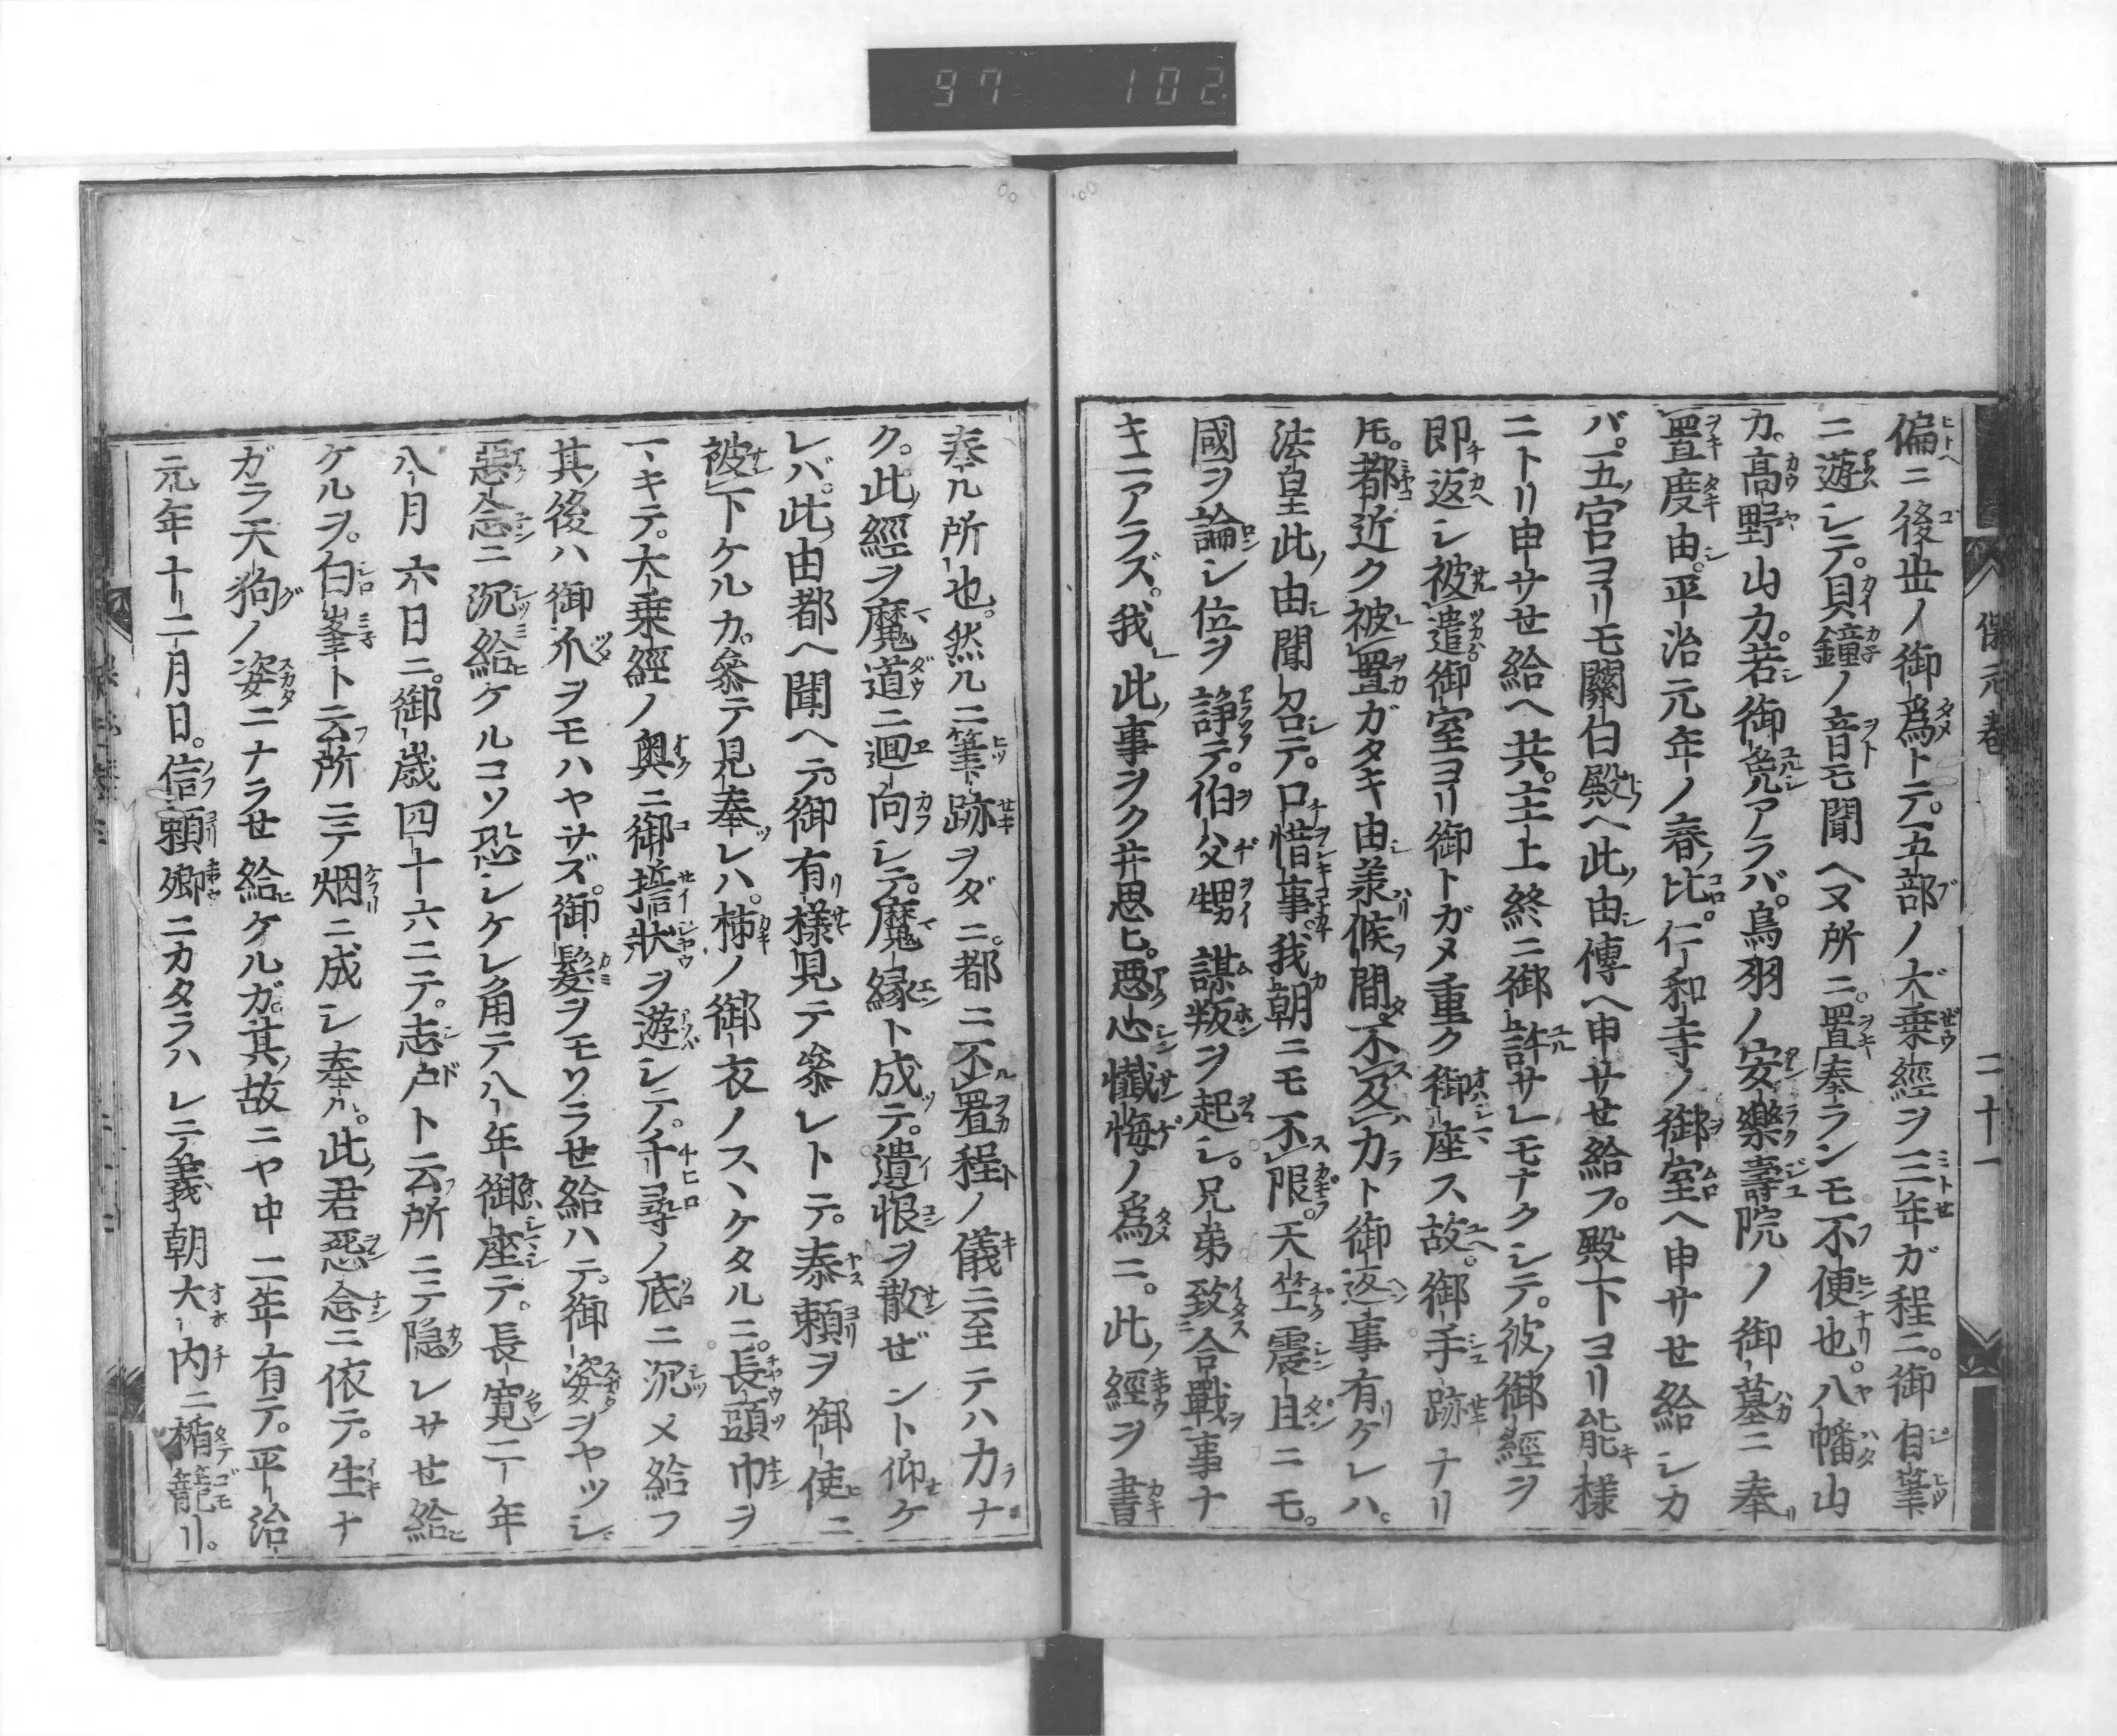 97 102
保元巻
二十一
偏ニ後世ノ御爲トテ。五部ノ大乗經ヲ三年ガ程ニ。御自筆
ニ遊シテ。貝鐘ノ音モ聞ヘヌ所ニ。置奉ランモ不便也。八幡山
カ。高野山カ。若御免アラバ。鳥羽ノ安樂壽院ノ御墓ニ奉
置度由。平治元年ノ春ノ比。仁和寺ノ御室ヘ申サせ給シカ
バ。五宮ヨリモ關白殿ヘ此由傳ヘ申サせ給フ。殿下ヨリ能様
ニトリ申サせ給ヘ共。主上終ニ御許サレモナクシテ。彼ノ御經ヲ
即返シ被遣御室ヨリ御トガメ重ク御座ス故。御手跡ナリ
モ。都近ク被置ガタキ由羕候間。不及力ト御返事有ケレハ。
法皇此由聞召テ。口惜事。我朝ニモ不限。天竺震旦ニモ。
國ヲ論シ位ヲ諍テ。伯父甥謀叛ヲ起シ。兄弟致合戰事ナ
キニアラズ。我此事ヲクヰ思ヒ。悪心懺悔ノ爲ニ。此經ヲ書
奉ル所也。然ルニ筆跡ヲダニ。都ニ不置程ノ儀ニ至テハ力ナ
ク。此經ヲ魔道ニ迴向シテ。魔縁ト成テ。遺恨ヲ散ぜント仰ケ
レバ。此由都ヘ聞ヘテ。御有様見テ參レトテ。泰頼ヲ御使ニ
被下ケルカ。參テ見奉レハ。柿ノ御衣ノスヽケタルニ。長頭巾ヲ
一キテ。大乗經ノ奥ニ御誓狀ヲ遊シテ。千尋ノ底ニ沉メ給フ
其後ハ御爪ヲモハヤサズ。御髪ヲモソラせ給ハテ。御姿ヲヤツシ。
惡念ニ沉給ケルコソ恐シケレ角テ八年御座テ。長寛二年
八月六日ニ。御歲四十六ニテ。志戸ト云所ニテ隠レサせ給
ケルヲ。白峯ト云所ニテ烟ニ成シ奉ル。此君惡念ニ依テ。生ナ
ガラ天狗ノ姿ニナラせ給ケルガ。其故ニヤ中二年有テ。平治
元年十二月日。信頼卿ニカタラハレテ義朝大内ニ楯籠リ。